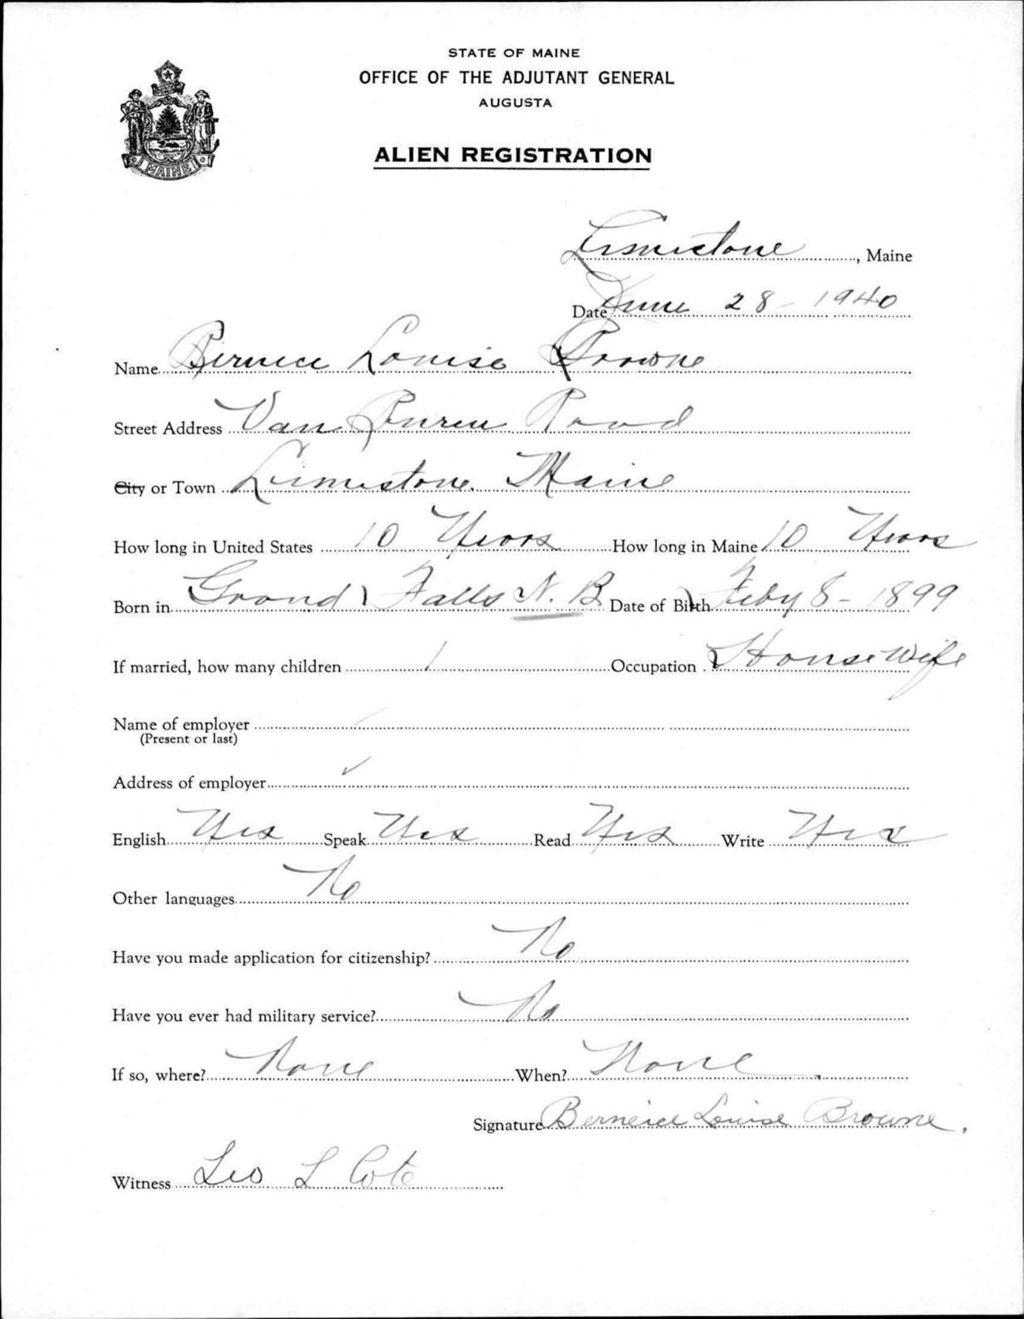 STATE OF MAINE
OFFICE OF THE ADJUTANT GENERAL
AUGUSTA
ALIEN REGISTRATION
MAINE
Limestone, Maine
Date June 28 - 1940
Name Bernice Louise Browne
Street Address Van Buren Road
City or Town Limestone Maine
How long in United States 10 Years How long in Maine 10 Years
Born in Grand Falls N. B. Date of Birth Feby 8 - 1899
If married, how many children 1 Occupation House Wife
Name of employer
(Present or last)
Address of employer
English Yes Speak Yes Read Yes Write Yes
Other languages No
Have you made application for citizenship? No
Have you ever had military service? No
If so, where? None When? None
Signature Berneice Louise Browne.
Witness Leo L Cote